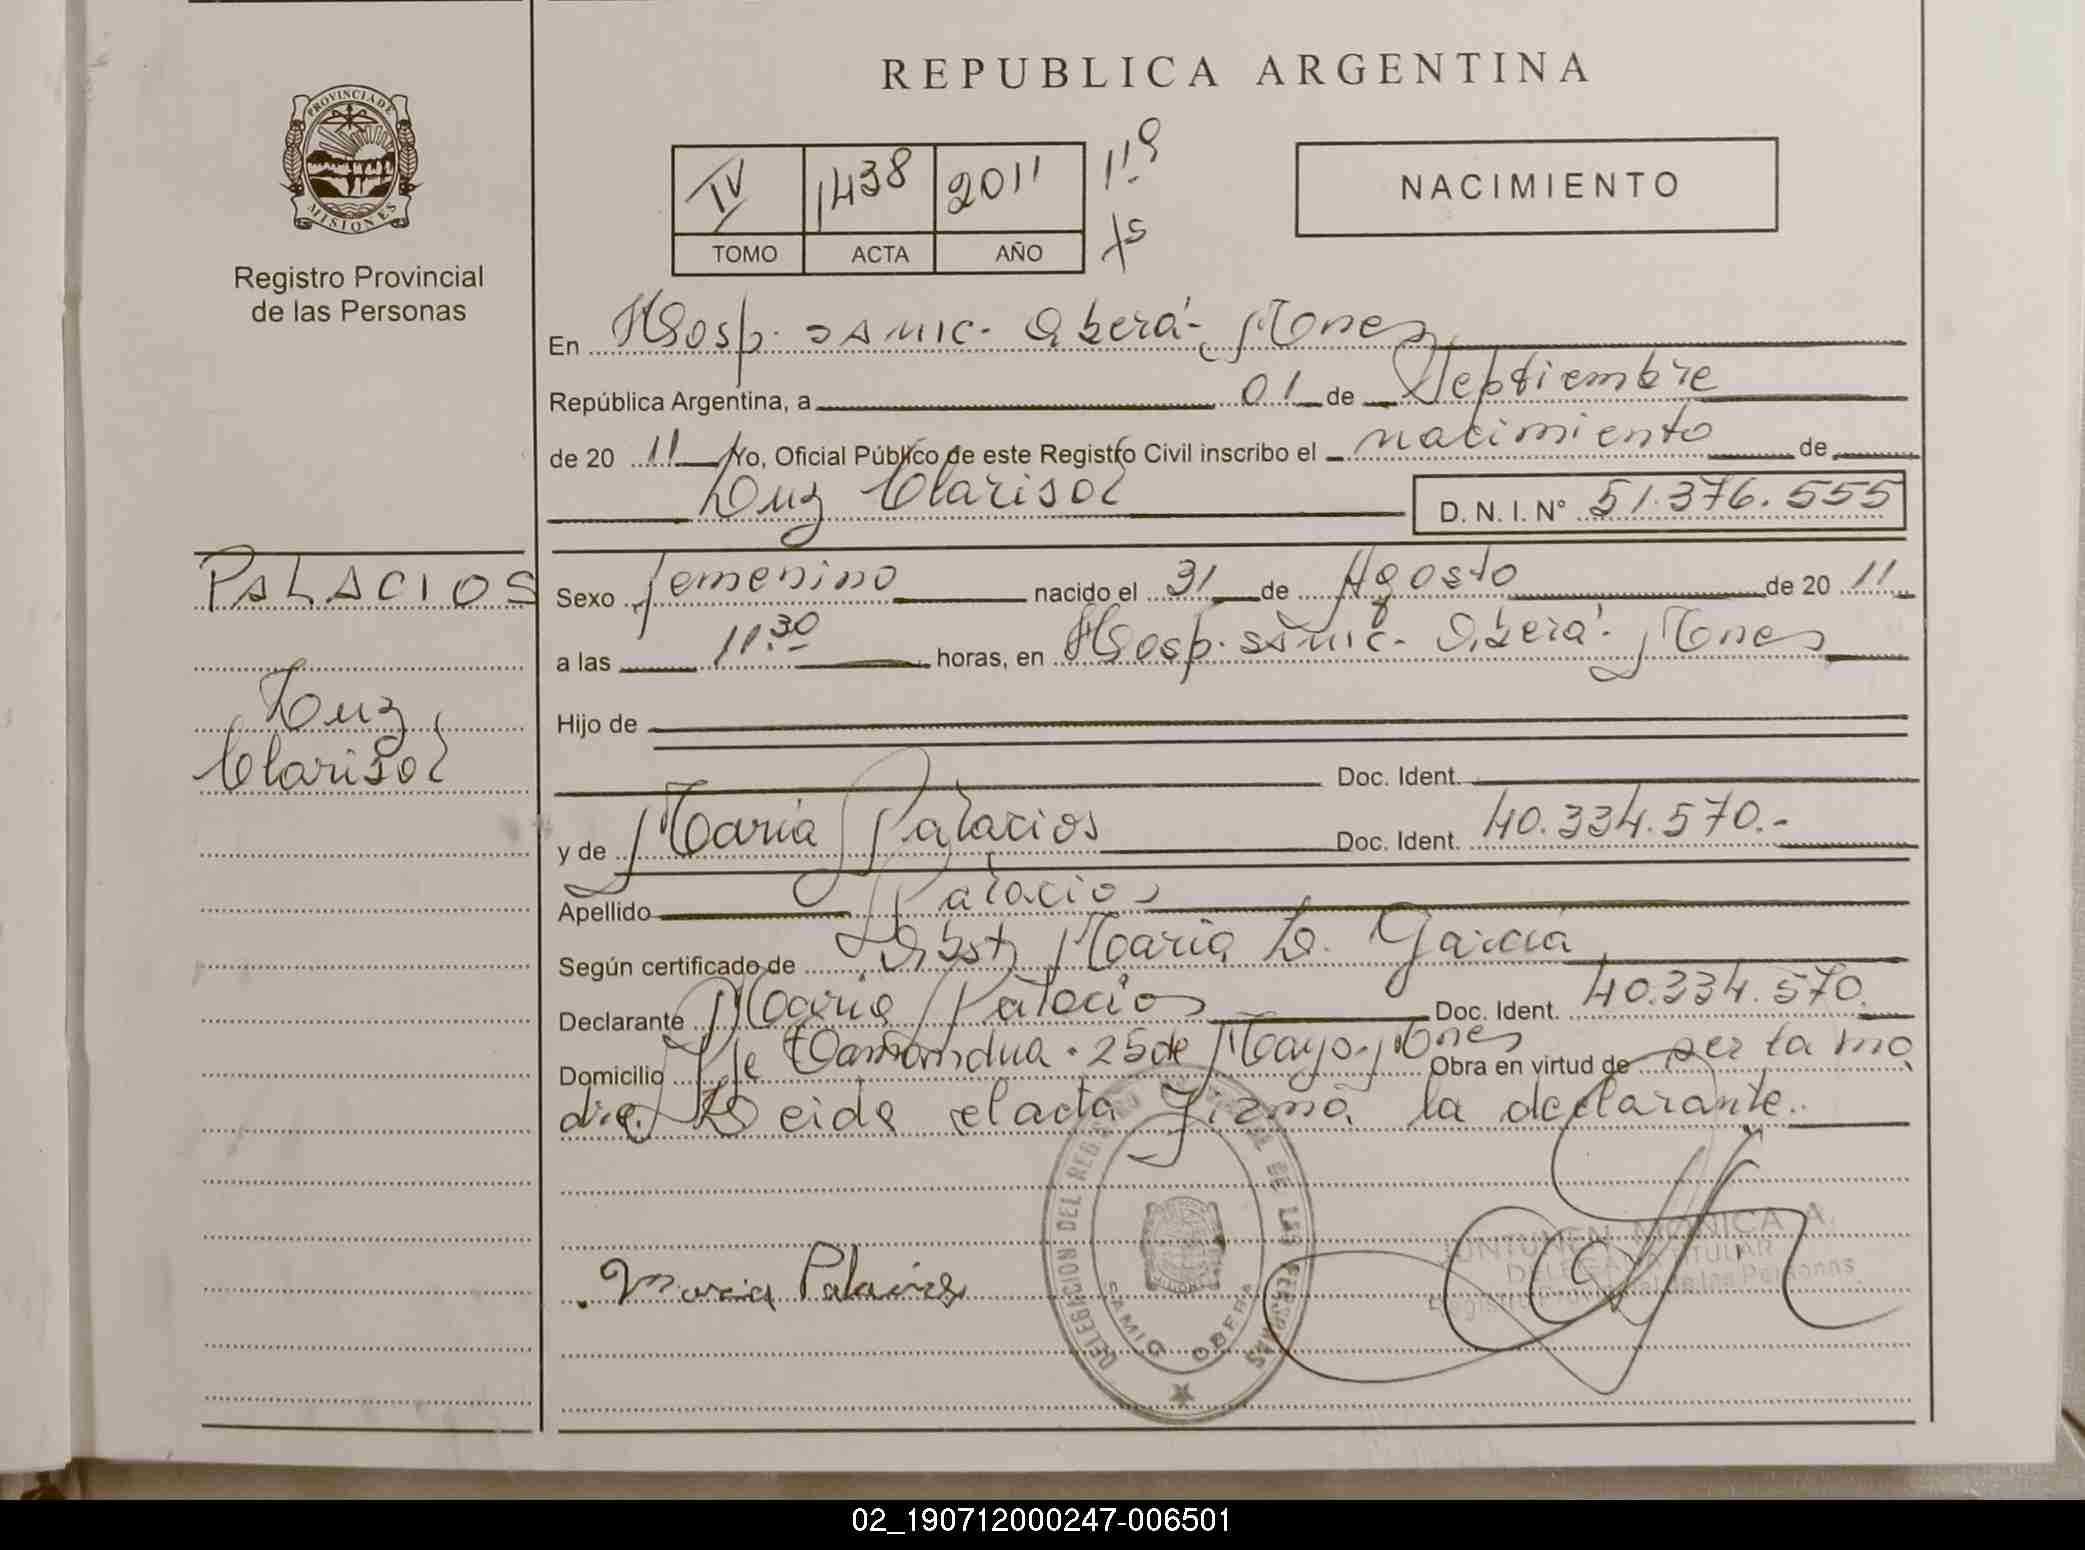 REPUBLICA ARGENTINA
PROVINCIA DE
MISIONES
Registro Provincial
de las Personas
IV 1438 2011
TOMO ACTA AÑO
NACIMIENTO
En Hosp. SAMIC - Oberá - Mones
República Argentina, a 01 de Septiembre
de 20 11 Yo, Oficial Público de este Registro Civil inscribo el nacimiento de
Luz Clarisol D. N. I. N° 51.376.555
PALACIOS
Luz
Clarisol
Sexo femenino nacido el 31 de Agosto de 20 11
a las 11.30 horas, en Hosp. SAMIC - Oberá - Mones
Hijo de
Doc. Ident.
y de María Palacios Doc. Ident. 40.334.570.-
Apellido Palacios
Según certificado de Obst. María L. García
Declarante María Palacios Doc. Ident. 40.334.570.
Domicilio Pje Tamandua - 25 de Mayo - Mones Obra en virtud de ser la ma
dre. Leida el acta firma la declarante.
María Palacios
DELEGACION DEL REGISTRO PROVINCIAL DE LAS PERSONAS
SAMIC OBERA
MONICA A.
DELEGADA TITULAR
Registro Provincial de las Personas
02_190712000247-006501